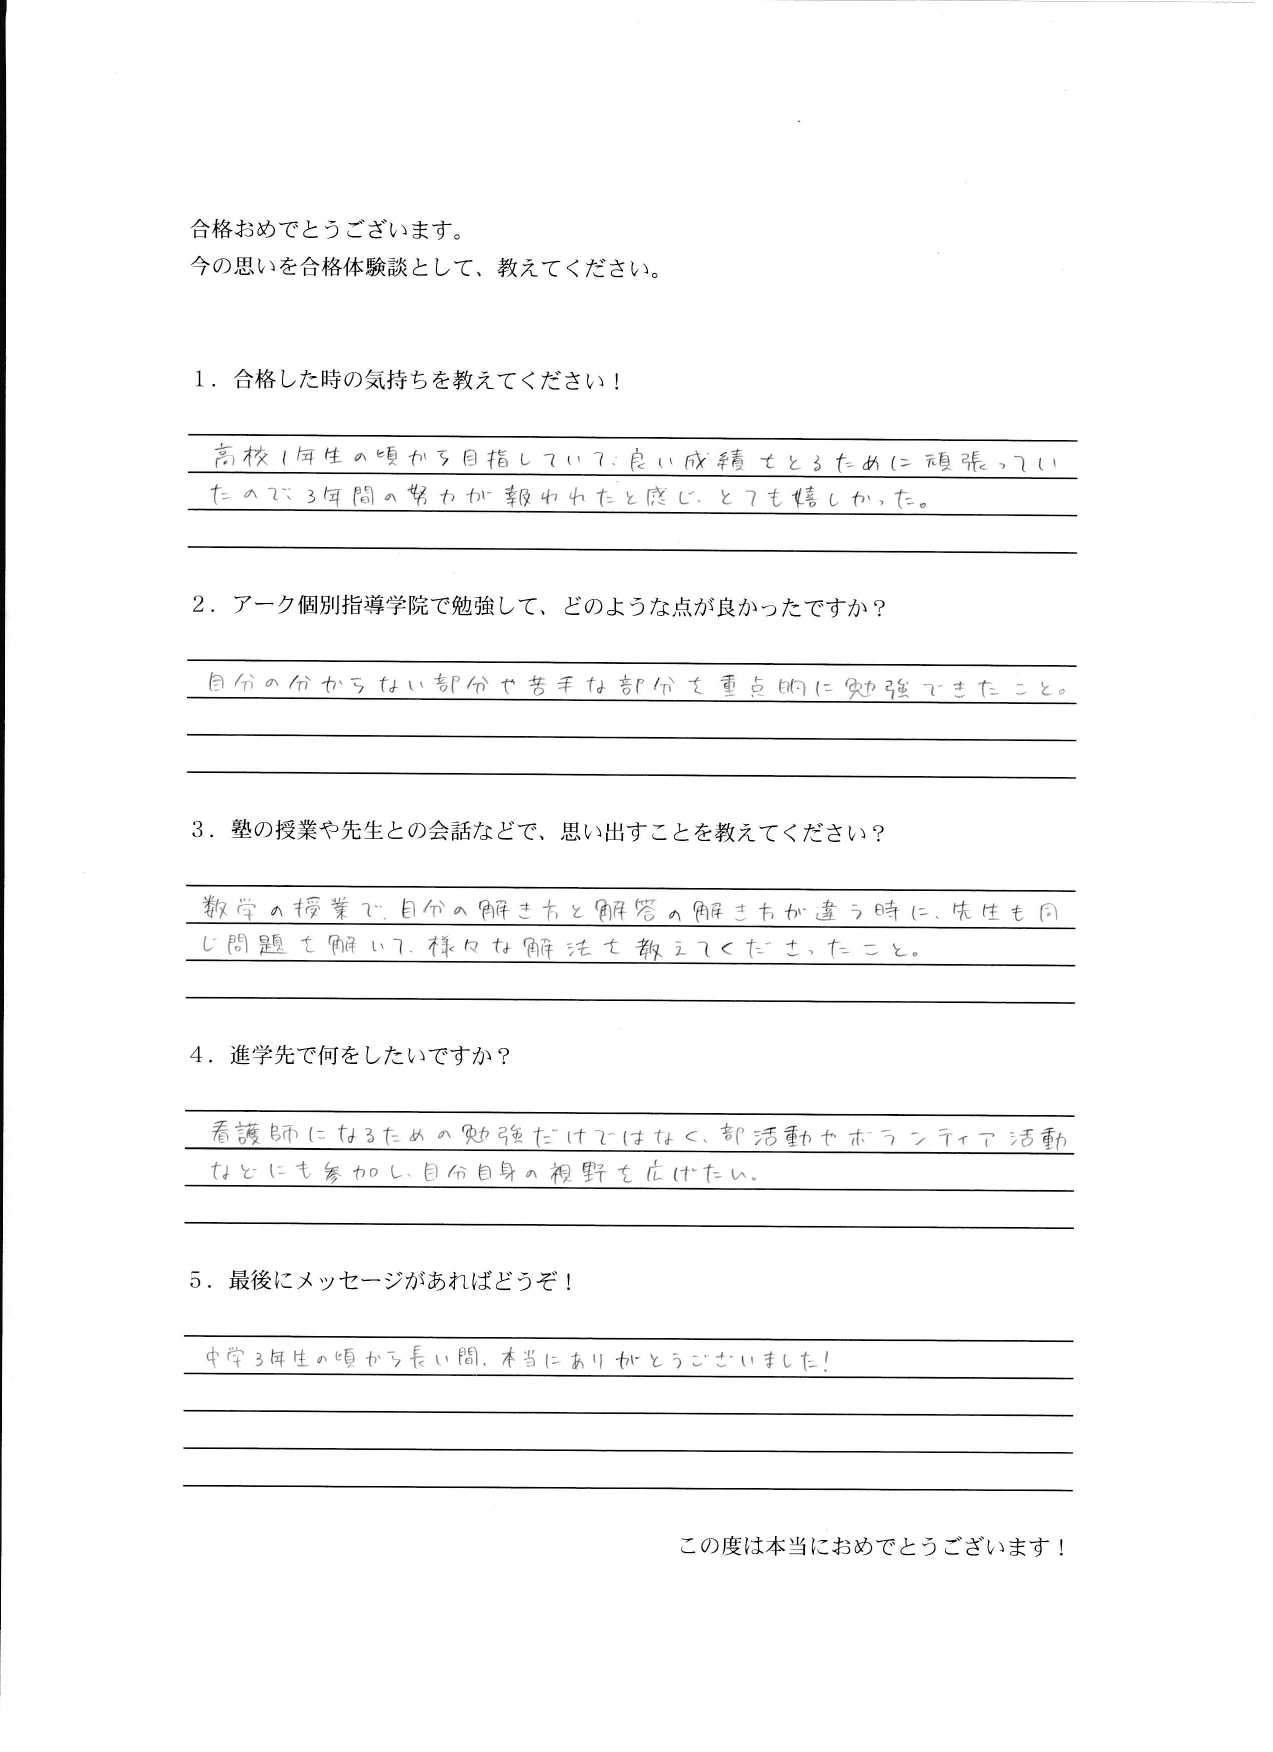 合格おめでとうございます。
今の思いを合格体験談として、教えてください。
1．合格した時の気持ちを教えてください！
高校1年生の頃から目指していて、良い成績をとるために頑張ってい
たので、3年間の努力が報われたと感じ、とても嬉しかった。
2．アーク個別指導学院で勉強して、どのような点が良かったですか？
自分の分からない部分や苦手な部分を重点的に勉強できたこと。
3．塾の授業や先生との会話などで、思い出すことを教えてください？
数学の授業で、自分の解き方と解答の解き方が違う時に、先生も同
じ問題を解いて、様々な解法を教えてくださったこと。
4．進学先で何をしたいですか？
看護師になるための勉強だけではなく、部活動やボランティア活動
などにも参加し、自分自身の視野を広げたい。
5．最後にメッセージがあればどうぞ！
中学3年生の頃から長い間、本当にありがとうございました！
この度は本当におめでとうございます！